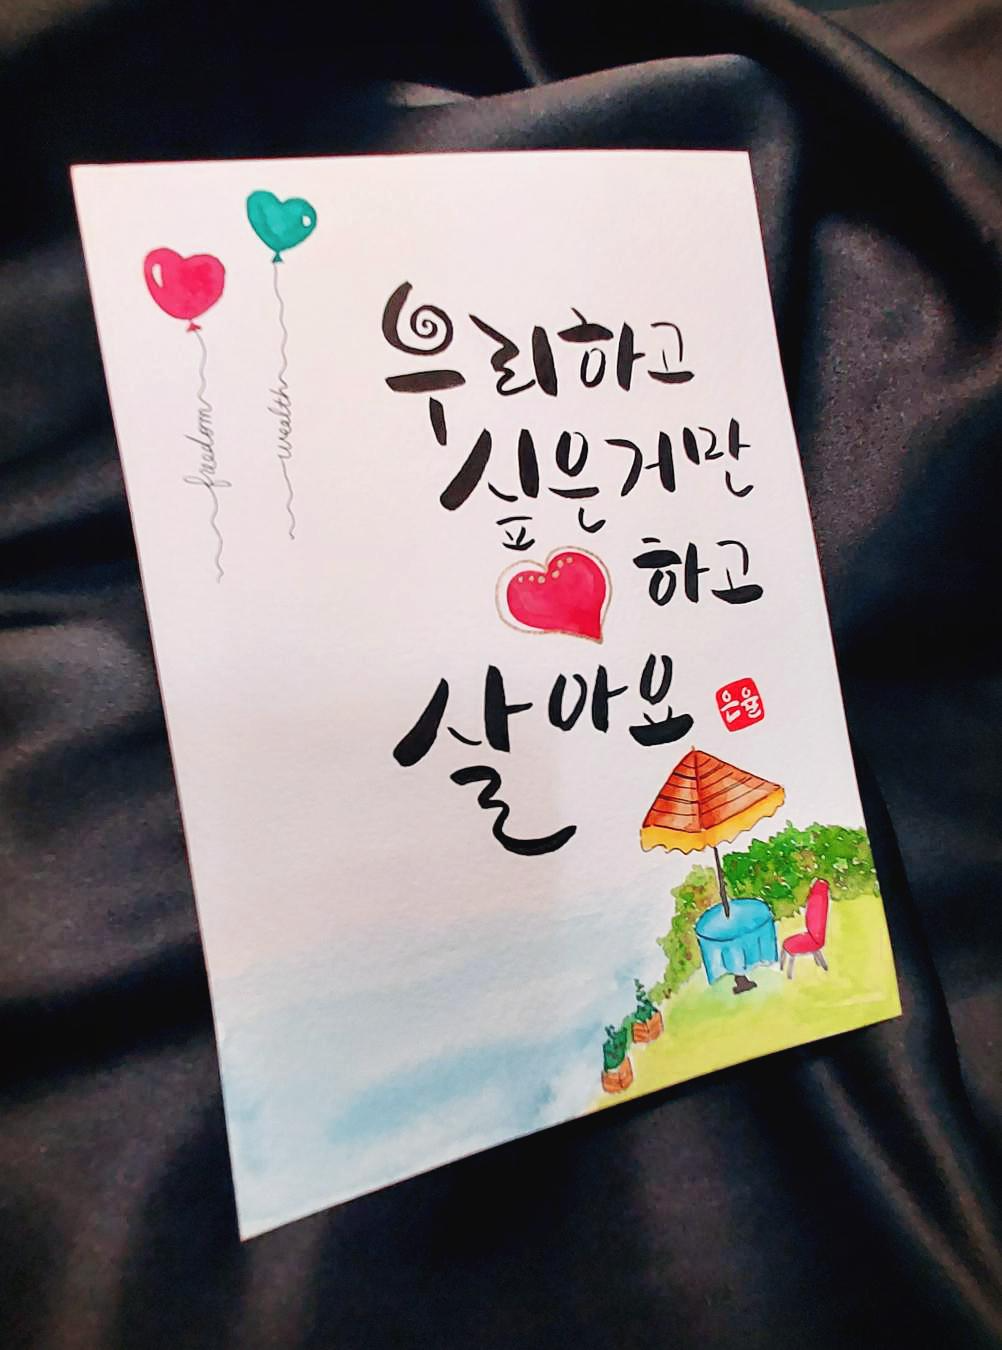 freedom
wealth
우리하고
싶은거만
하고
살아요
은율